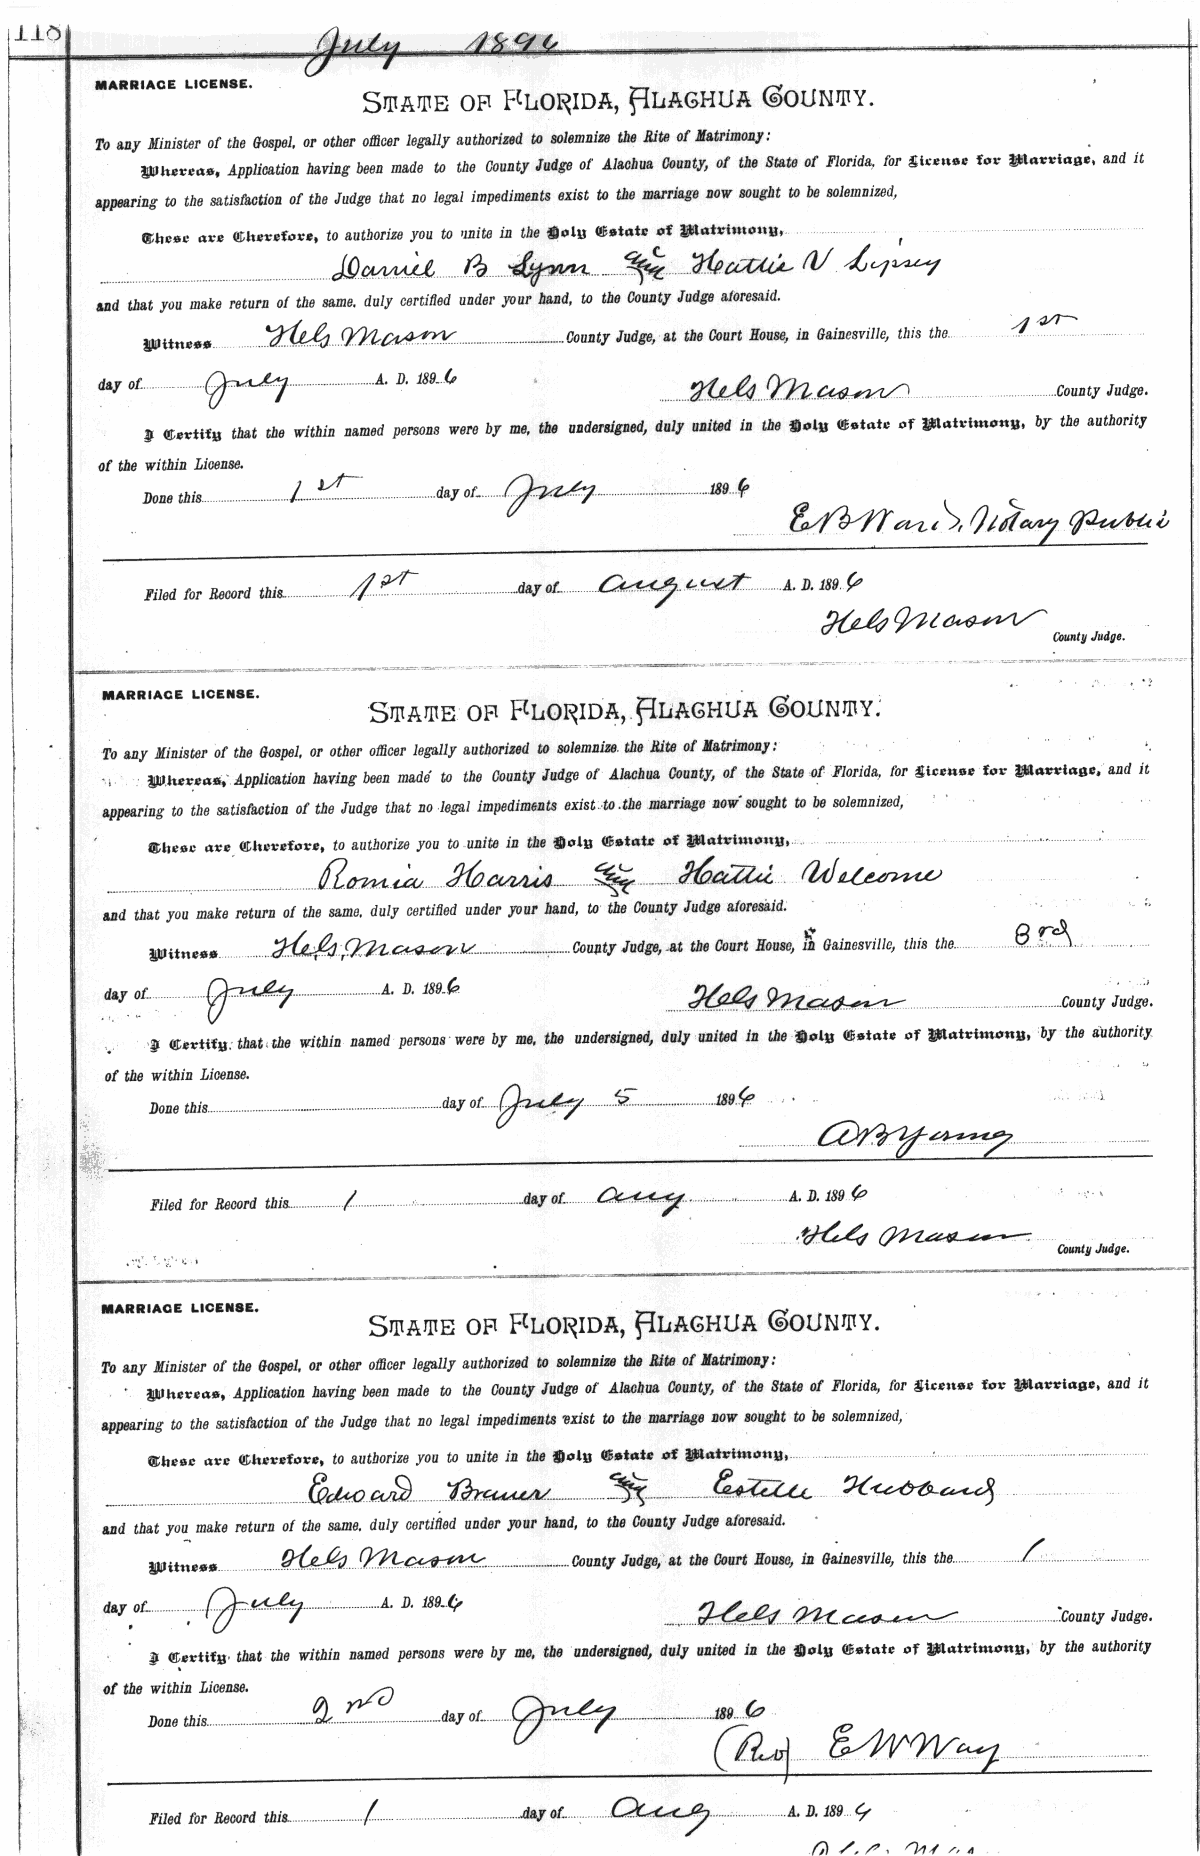 118
July 1896
MARRIAGE LICENSE.
STATE OF FLORIDA, ALACHUA COUNTY.
To any Minister of the Gospel, or other officer legally authorized to solemnize the Rite of Matrimony:
Whereas, Application having been made to the County Judge of Alachua County, of the State of Florida, for License for Marriage, and it
appearing to the satisfaction of the Judge that no legal impediments exist to the marriage now sought to be solemnized,
These are Therefore, to authorize you to unite in the Holy Estate of Matrimony,
Daniel B Lynn and Hattie V Lipsey
and that you make return of the same, duly certified under your hand, to the County Judge aforesaid.
Witness Mason County Judge, at the Court House, in Gainesville, this the 1st
day of July A. D. 1896
Mason County Judge.
I Certify that the within named persons were by me, the undersigned, duly united in the Holy Estate of Matrimony, by the authority
of the within License.
Done this 1st day of July 1896
E B Ward, Notary Public
Filed for Record this 1st day of August A. D. 1896
Mason
County Judge.
MARRIAGE LICENSE.
STATE OF FLORIDA, ALACHUA COUNTY.
To any Minister of the Gospel, or other officer legally authorized to solemnize the Rite of Matrimony:
Whereas, Application having been made to the County Judge of Alachua County, of the State of Florida, for License for Marriage, and it
appearing to the satisfaction of the Judge that no legal impediments exist to the marriage now sought to be solemnized,
These are Therefore, to authorize you to unite in the Holy Estate of Matrimony,
Romia Harris and Hattie Welcome
and that you make return of the same, duly certified under your hand, to the County Judge aforesaid.
Witness Mason County Judge, at the Court House, in Gainesville, this the 3rd
day of July A. D. 1896
Mason County Judge.
I Certify that the within named persons were by me, the undersigned, duly united in the Holy Estate of Matrimony, by the authority
of the within License.
Done this day of July 5 1896
A B Young
Filed for Record this 1 day of Aug A. D. 1896
Mason
County Judge.
MARRIAGE LICENSE.
STATE OF FLORIDA, ALACHUA COUNTY.
To any Minister of the Gospel, or other officer legally authorized to solemnize the Rite of Matrimony:
Whereas, Application having been made to the County Judge of Alachua County, of the State of Florida, for License for Marriage, and it
appearing to the satisfaction of the Judge that no legal impediments exist to the marriage now sought to be solemnized,
These are Therefore, to authorize you to unite in the Holy Estate of Matrimony,
Edward and Estelle Hubbard
and that you make return of the same, duly certified under your hand, to the County Judge aforesaid.
Witness Mason County Judge, at the Court House, in Gainesville, this the 1
day of July A. D. 1896
Mason County Judge.
I Certify that the within named persons were by me, the undersigned, duly united in the Holy Estate of Matrimony, by the authority
of the within License.
Done this 2nd day of July 1896
(Rev) E W Way
Filed for Record this 1 day of Aug A. D. 1896